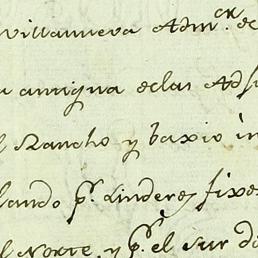 Villanueva Adm.on de
antigua de las Ads
Rancho y baxio in
lando p.r Linderes fixes
el Norte, y p.r el sur de